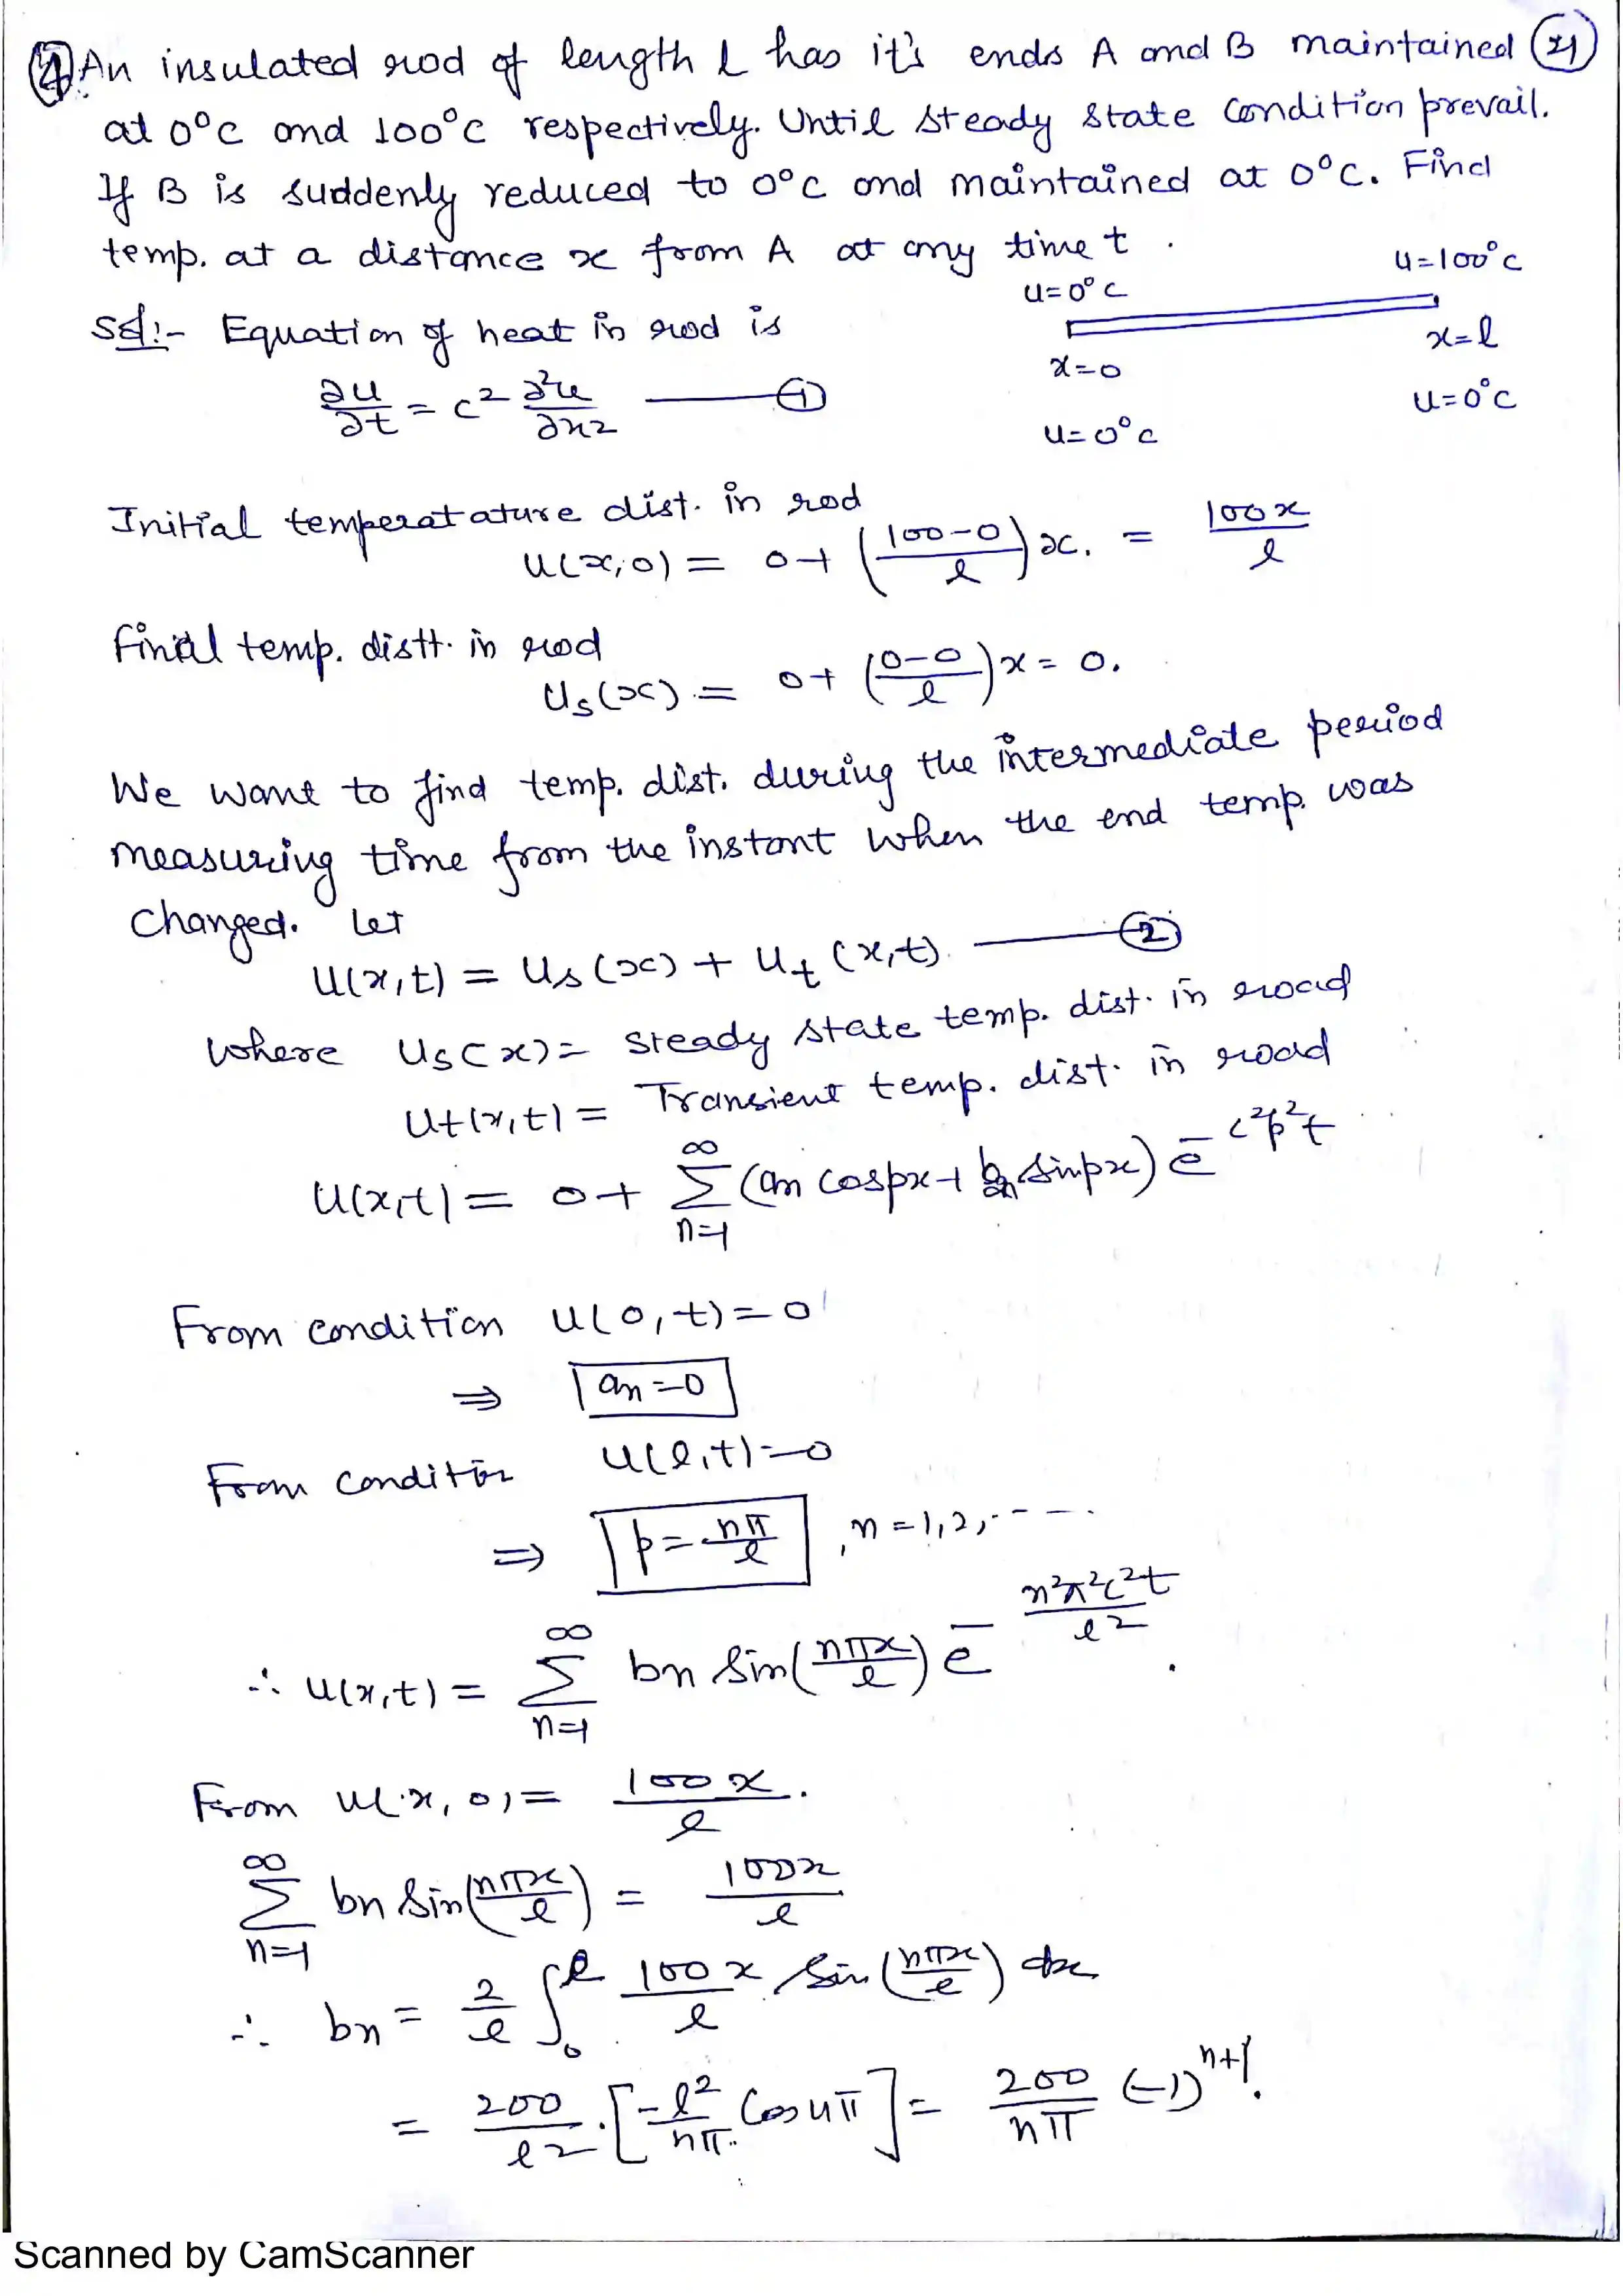 ④ An insulated rod of length l has it's ends A and B maintained (21)
at 0°C and 100°C respectively. Until steady state condition prevail.
If B is suddenly reduced to 0°C and maintained at 0°C. Find
temp. at a distance x from A at any time t.
u=0°C u=100°C
Sol:- Equation of heat in rod is
x=0 x=l
∂u/∂t = c² ∂²u/∂x² —— ①
u=0°C u=0°C
Initial temperatature dist. in rod
u(x,0) = 0+ ((100-0)/l) x. = 100x/l
Final temp. distt. in rod
us(x) = 0+ ((0-0)/l) x = 0.
We want to find temp. dist. during the intermediate period
measuring time from the instant when the end temp. was
changed. Let
u(x,t) = us(x) + ut(x,t) —— ②
where us(x) = steady state temp. dist. in road
ut(x,t) = Transient temp. dist. in road
u(x,t) = 0+ ∑_{n=1}^{∞} (an cospx + bn sinpx) e^{-c²p²t}
From condition u(0,t)=0
⇒ an=0
From condition u(l,t)=0
⇒ p = nπ/l , n=1,2,----.
∴ u(x,t) = ∑_{n=1}^{∞} bn sin(nπx/l) e^{-n²π²c²t/l²}.
From u(x,0) = 100x/l.
∑_{n=1}^{∞} bn sin(nπx/l) = 100x/l
∴ bn = 2/l ∫₀^l 100x/l sin(nπx/l) dx
= 200/l² . [-l²/nπ. Cos nπ] = 200/nπ (-1)^{n+1}.
Scanned by CamScanner